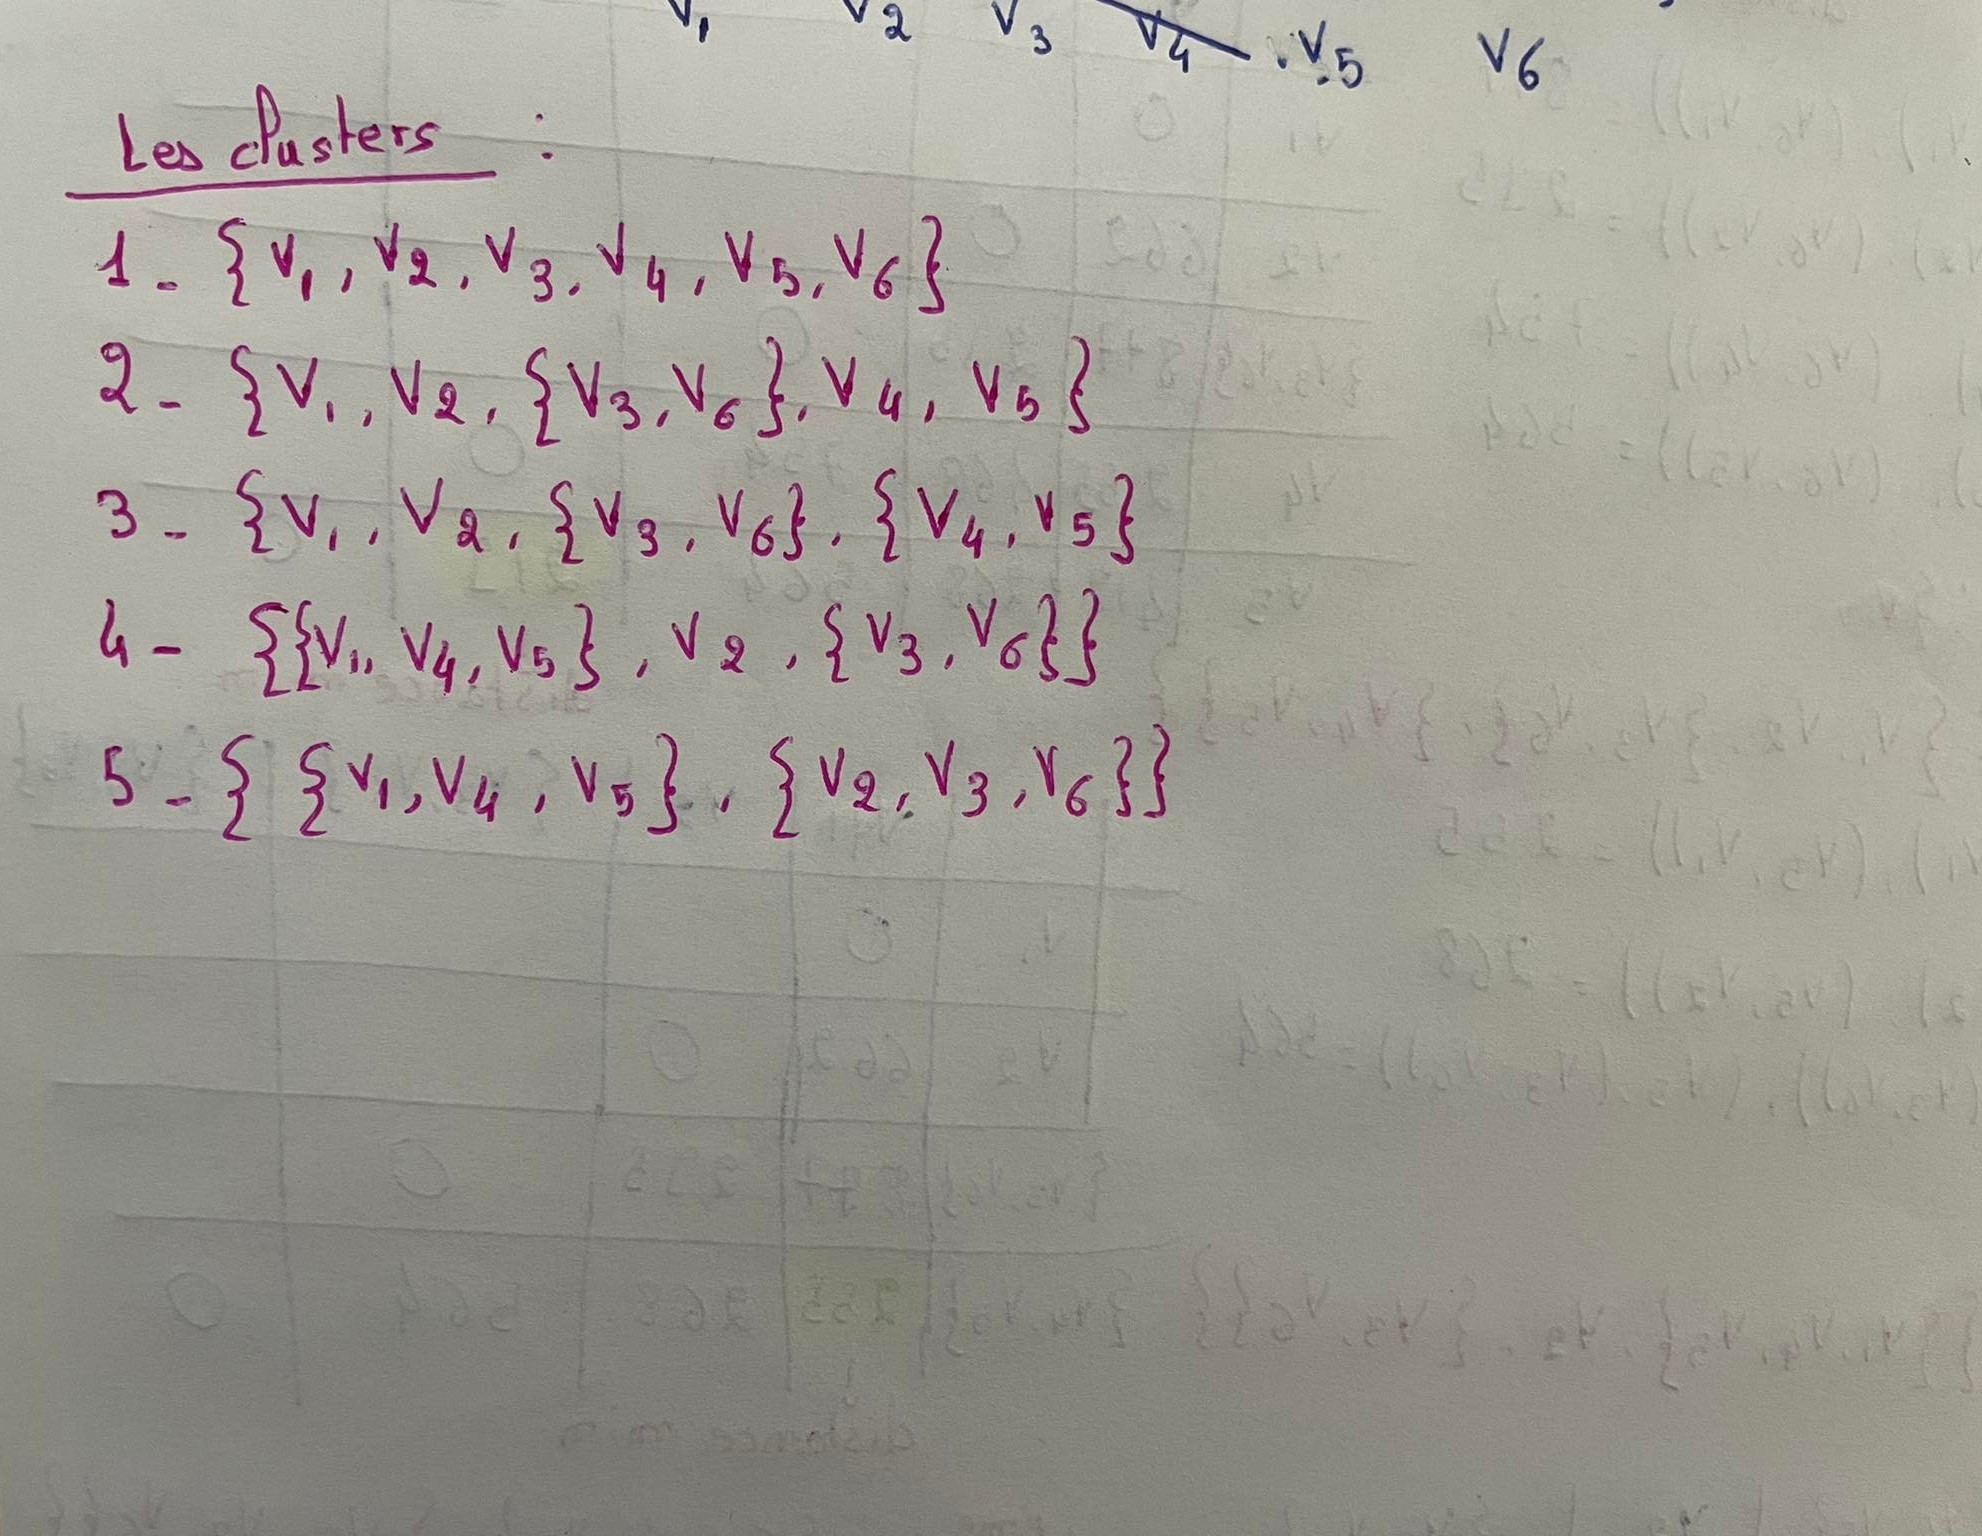 V1 V2 V3 V4 V5 V6
Les clusters :
1- {V1, V2, V3, V4, V5, V6}
2- {V1, V2, {V3, V6}, V4, V5}
3- {V1, V2, {V3, V6}, {V4, V5}
4- {{V1, V4, V5}, V2, {V3, V6}}
5- { {V1, V4, V5}, {V2, V3, V6}}